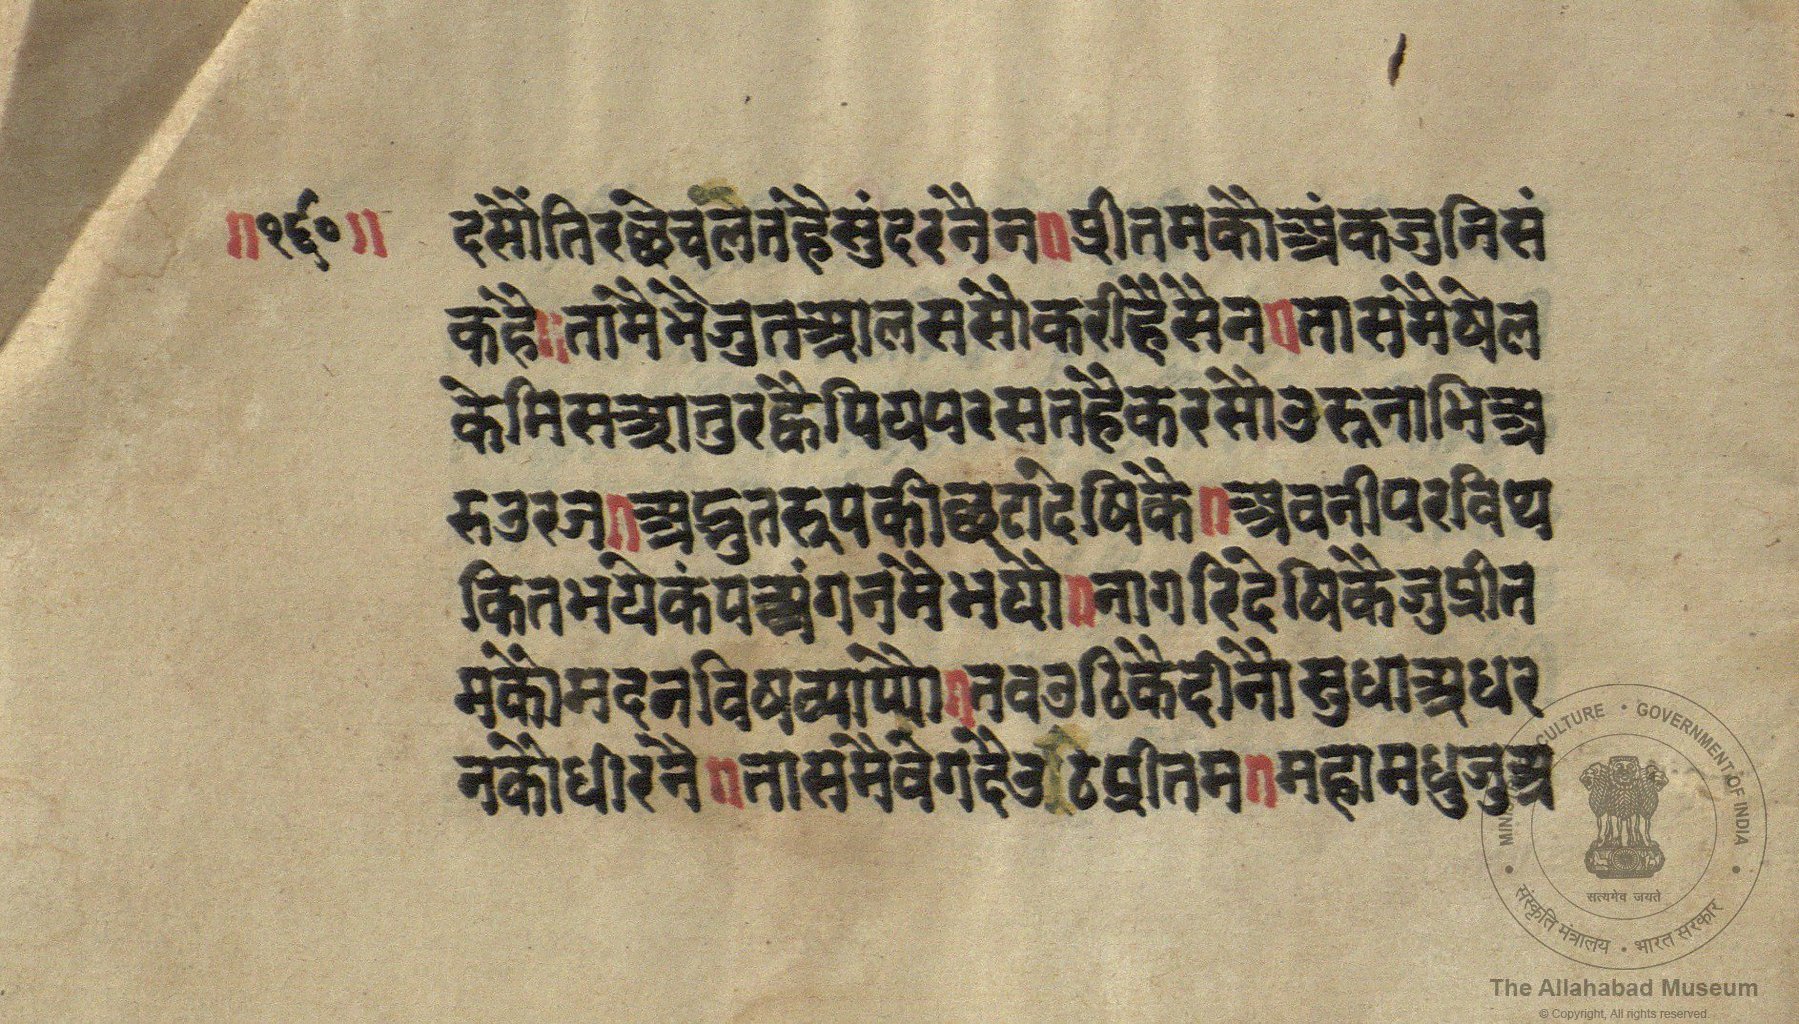 ॥१६०॥
दसौंतिरछेचलतहैसुंदरनैन॥प्रीतमकौअंकजुनिसं
कहै॥तामैमैजुतआलससौकरीहैसैन॥तासमैषेल
केमिसआतुरह्वैपियपरसतहैकरसौउरूनाभिअ
रुउरज॥अद्भुतरूपकीछटादेषिकै॥अवनीपरविथ
कितभयेकंपअंगनमैभयौ॥नागरिदेषिकैजुप्रीत
मकौमदनविषव्याप्यौ॥तवउठिकैदीनौसुधाअधर
नकौधीरनै॥तासमैवेगदैउठिप्रीतम॥महामधुजुअ
MINISTRY OF CULTURE • GOVERNMENT OF INDIA
सत्यमेव जयते
संस्कृति मंत्रालय • भारत सरकार
The Allahabad Museum
© Copyright, All rights reserved.